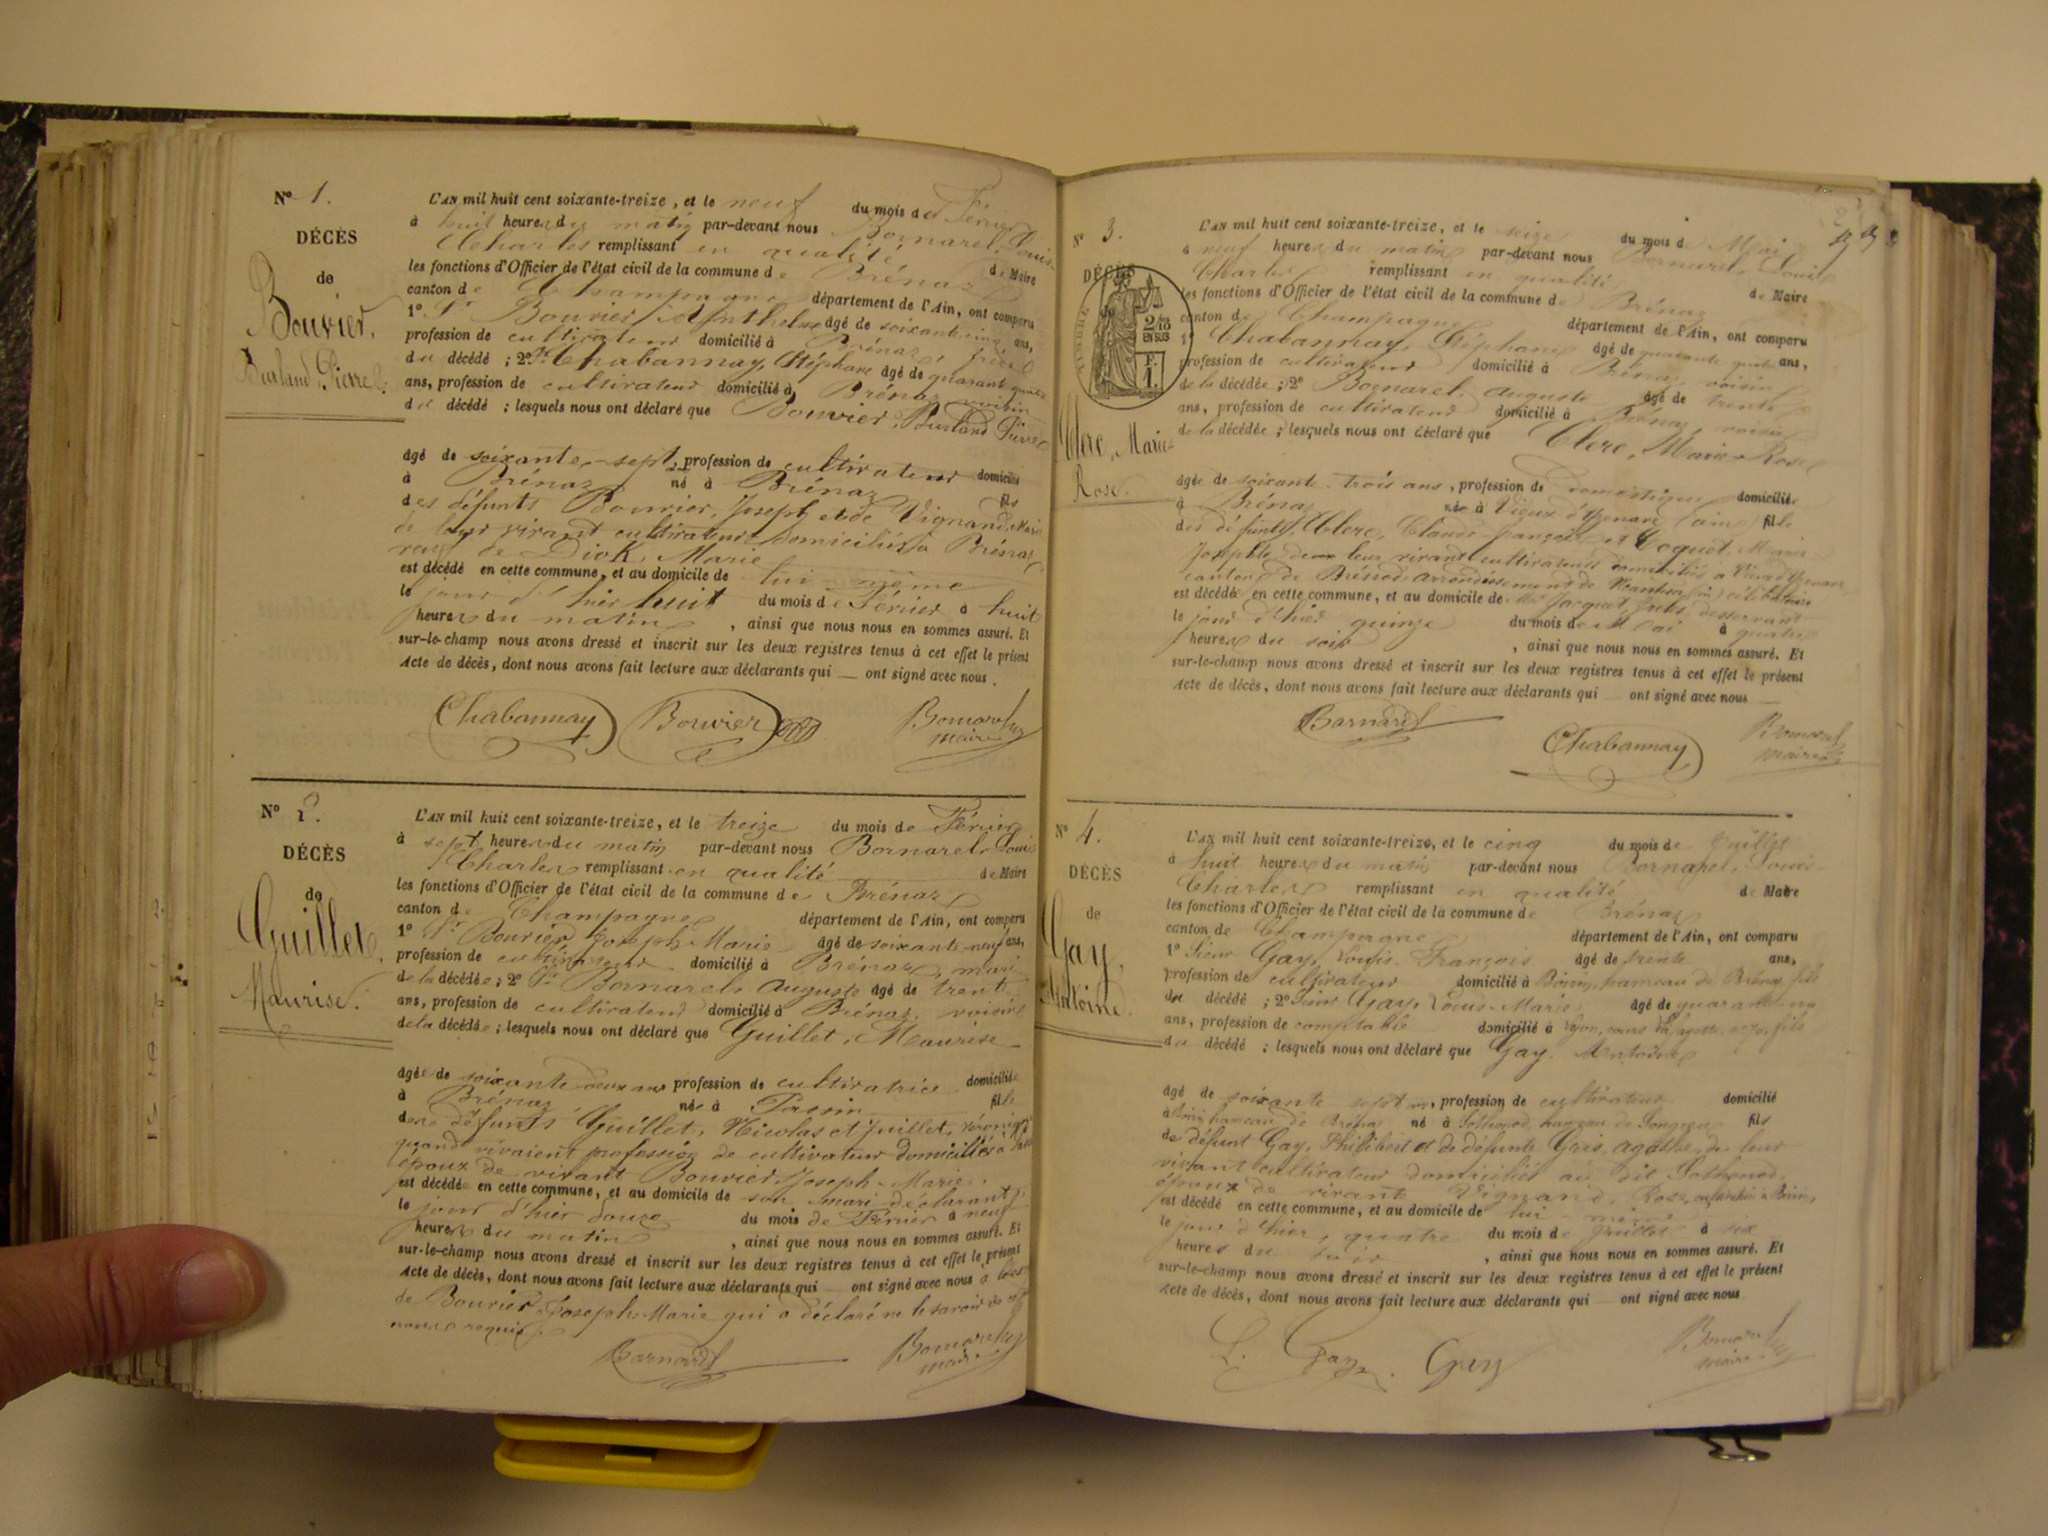 N° 1.
DÉCÈS
de
Bouvier,
Burland, Pierre.
L'AN mil huit cent soixante-treize, et le neuf du mois de Février
à huit heures du matin par-devant nous Bornarel, Louis-
Charles remplissant en qualité de Maire
les fonctions d'Officier de l'état civil de la commune de Brénaz
canton de Champagne département de l'Ain, ont comparu
1° Sr Bouvier, Anthelme âgé de soixante cinq ans,
profession de cultivateur domicilié à Brénaz, frère
du décédé ; 2° Sr Chabannay, Stéphane âgé de quarante quatre
ans, profession de cultivateur domicilié à Brénaz voisin
du décédé ; lesquels nous ont déclaré que Bouvier, Burland Pierre
âgé de soixante-sept, profession de cultivateur domicilié
à Brénaz né à Brénaz fils
des défunts Bouvier, Joseph et de Vignand, Marie
de leur vivant cultivateurs domiciliés à Brénaz,
de Diok, Marie
est décédé en cette commune, et au domicile de lui même
le jour d'hier huit du mois de Février à huit
heures du matin, ainsi que nous nous en sommes assuré. Et
sur-le-champ nous avons dressé et inscrit sur les deux registres tenus à cet effet le présent
Acte de décès, dont nous avons fait lecture aux déclarants qui — ont signé avec nous.
Chabannay Bouvier Bornarel
maire
N° 2.
DÉCÈS
de
Guillet,
Maurise.
L'AN mil huit cent soixante-treize, et le treize du mois de Février
à sept heures du matin par-devant nous Bornarel, Louis
Charles remplissant en qualité de Maire
les fonctions d'Officier de l'état civil de la commune de Brénaz
canton de Champagne département de l'Ain, ont comparu
1° Sr Bouvier, Joseph-Marie âgé de soixante-neuf ans,
profession de cultivateur domicilié à Brénaz, mari
de la décédée ; 2° Sr Bornarel, Auguste âgé de trente
ans, profession de cultivateur domicilié à Brénaz, voisin
de la décédée ; lesquels nous ont déclaré que Guillet, Maurise
âgée de soixante deux ans profession de cultivatrice domiciliée
à Brénaz née à Passin fille
des défunts Guillet, Nicolas et Juillet, Véronique
quand vivaient profession de cultivateur domiciliés à
épouse de vivant Bouvier, Joseph-Marie,
est décédée en cette commune, et au domicile de son mari déclarant
le jour d'hier douze du mois de Février à neuf
heures du matin, ainsi que nous nous en sommes assuré. Et
sur-le-champ nous avons dressé et inscrit sur les deux registres tenus à cet effet le présent
Acte de décès, dont nous avons fait lecture aux déclarants qui — ont signé avec nous
de Bouvier Joseph-Marie qui a déclaré ne le savoir de ce
requis.
Bornarel Bornarel
maire
N° 3.
DÉCÈS
TIMBRE
2/10
EN SUS
F.
1.
Clerc, Marie-
Rose.
L'AN mil huit cent soixante-treize, et le seize du mois de Mai
à neuf heures du matin par-devant nous Bornarel, Louis
Charles remplissant en qualité de Maire
les fonctions d'Officier de l'état civil de la commune de Brénaz
canton de Champagne département de l'Ain, ont comparu
1° Chabannay, Stéphane âgé de quarante quatre ans,
profession de cultivateur domicilié à Brénaz, voisin
de la décédée ; 2° Bornarel, Auguste âgé de trente
ans, profession de cultivateur domicilié à Brénaz, voisin
de la décédée ; lesquels nous ont déclaré que Clerc, Marie-Rose
âgée de soixante-trois ans, profession de domestique domiciliée
à Brénaz née à Vieux d'Izenave (ain) fille
des défunts Clerc, Claude françois et Coquet, Marie-
Josephte de leur vivant cultivateurs domiciliés à Vieux d'Izenave
canton de Brénod arrondissement de Nantua (ain) célibataire
est décédée en cette commune, et au domicile de Mr Jacquet, Jules, desservant
le jour d'hier quinze du mois de Mai à quatre
heures du soir, ainsi que nous nous en sommes assuré. Et
sur-le-champ nous avons dressé et inscrit sur les deux registres tenus à cet effet le présent
Acte de décès, dont nous avons fait lecture aux déclarants qui — ont signé avec nous —
Bornarel Chabannay Bornarel
maire
N° 4.
DÉCÈS
de
Gay,
Antoine.
L'AN mil huit cent soixante-treize, et le cinq du mois de Juillet
à huit heures du matin par-devant nous Bornarel, Louis-
Charles remplissant en qualité de Maire
les fonctions d'Officier de l'état civil de la commune de Brénaz
canton de Champagne département de l'Ain, ont comparu
1° Sieur Gay, Louis-François âgé de trente ans,
profession de cultivateur domicilié à Boirin, hameau de Brénaz, fils
du décédé ; 2° Sieur Gay, Louis-Marie, âgé de quarante un
ans, profession de comptable domicilié à Lyon, cours Lafayette, n° 70, fils
du décédé ; lesquels nous ont déclaré que Gay, Antoine
âgé de soixante sept ans, profession de cultivateur domicilié
à Boirin hameau de Brénaz né à Sothonod, hameau de Songieu fils
de défunt Gay, Philibert et de défunte Gris, agathe, de leur
vivant cultivateur domiciliés au dit Sothonod,
époux de vivant Vignand, Rose, à Boirin,
est décédé en cette commune, et au domicile de lui-même
le jour d'hier, quatre du mois de Juillet à six
heures du soir, ainsi que nous nous en sommes assuré. Et
sur-le-champ nous avons dressé et inscrit sur les deux registres tenus à cet effet le présent
Acte de décès, dont nous avons fait lecture aux déclarants qui — ont signé avec nous
L. Gay. Gay Bornarel
maire